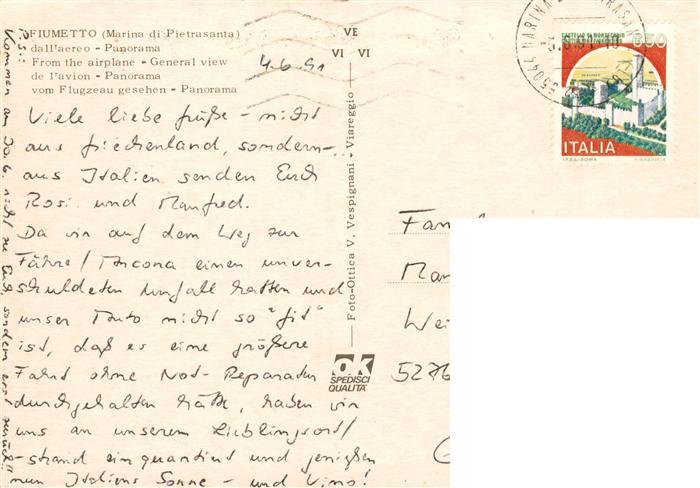 FIUMETTO (Marina di Pietrasanta)
dall'aereo - Panorama
From the airplane - General view
de l'avion - Panorama
vom Flugzeau gesehen - Panorama
VE
VI VI
4.6.91
Viele liebe Grüße - nicht
aus Griechenland, sondern
aus Italien senden Euch
Rosi und Manfred.
Da wir auf dem Weg zur
Fähre/Ancona einen unver-
schuldeten Unfall hatten und
unser Auto nicht so "fit"
ist, daß es eine größere
Fahrt ohne Not-Reparaturen
durchgehalten hätte, haben wir
uns an unserem Lieblingsort/
-strand einquartiert und genießen
nun Italiens Sonne - und Vino!
P.S.: Kommen am 30.6. nicht zu Euch, sondern erst zurück!!
Foto-Ottica V. Vespignani - Viareggio
ok
SPEDISCI
QUALITA'
55044 MARINA
650
ITALIA
I.P.Z.S.-ROMA
Fam
Man
Wei
5276